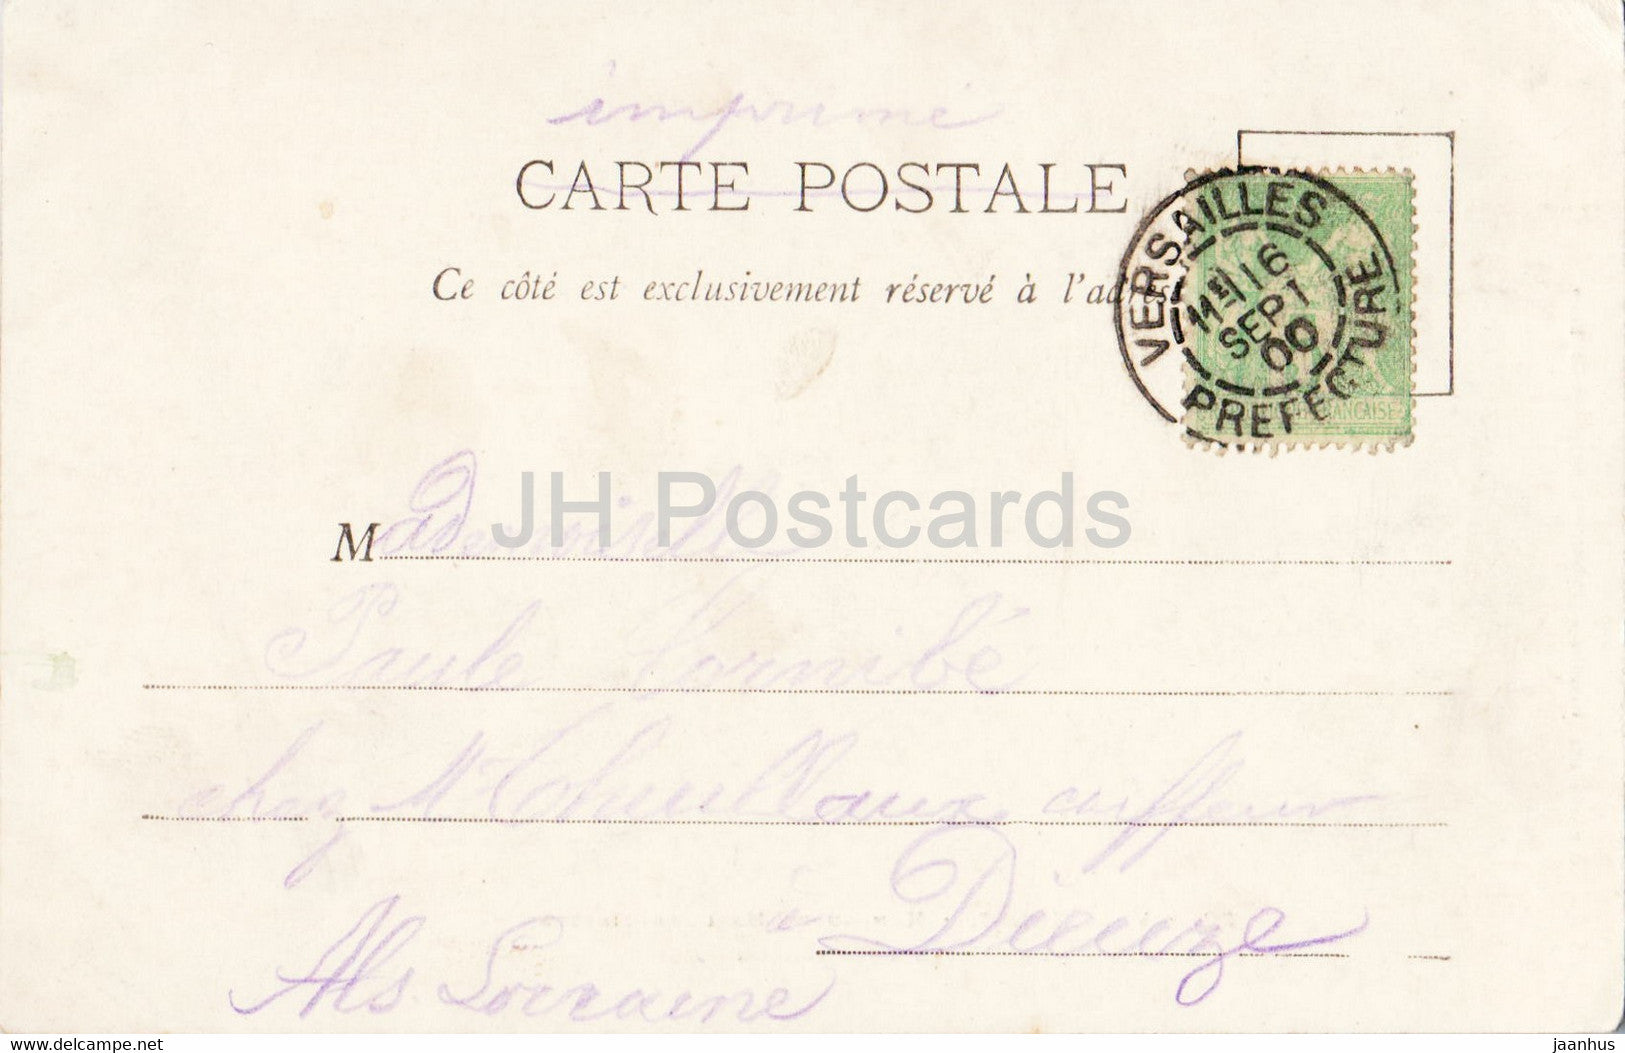 imprimé
CARTE POSTALE
Ce côté est exclusivement réservé à l'adres
VERSAILLES
11E 16
SEPT
00
PREFECTURE
ANÇAISE
JH Postcards
Mademoiselle
Paule
chez Mr coiffeur
à Dieuze
Als Lorraine
delcampe.net
jaanhus